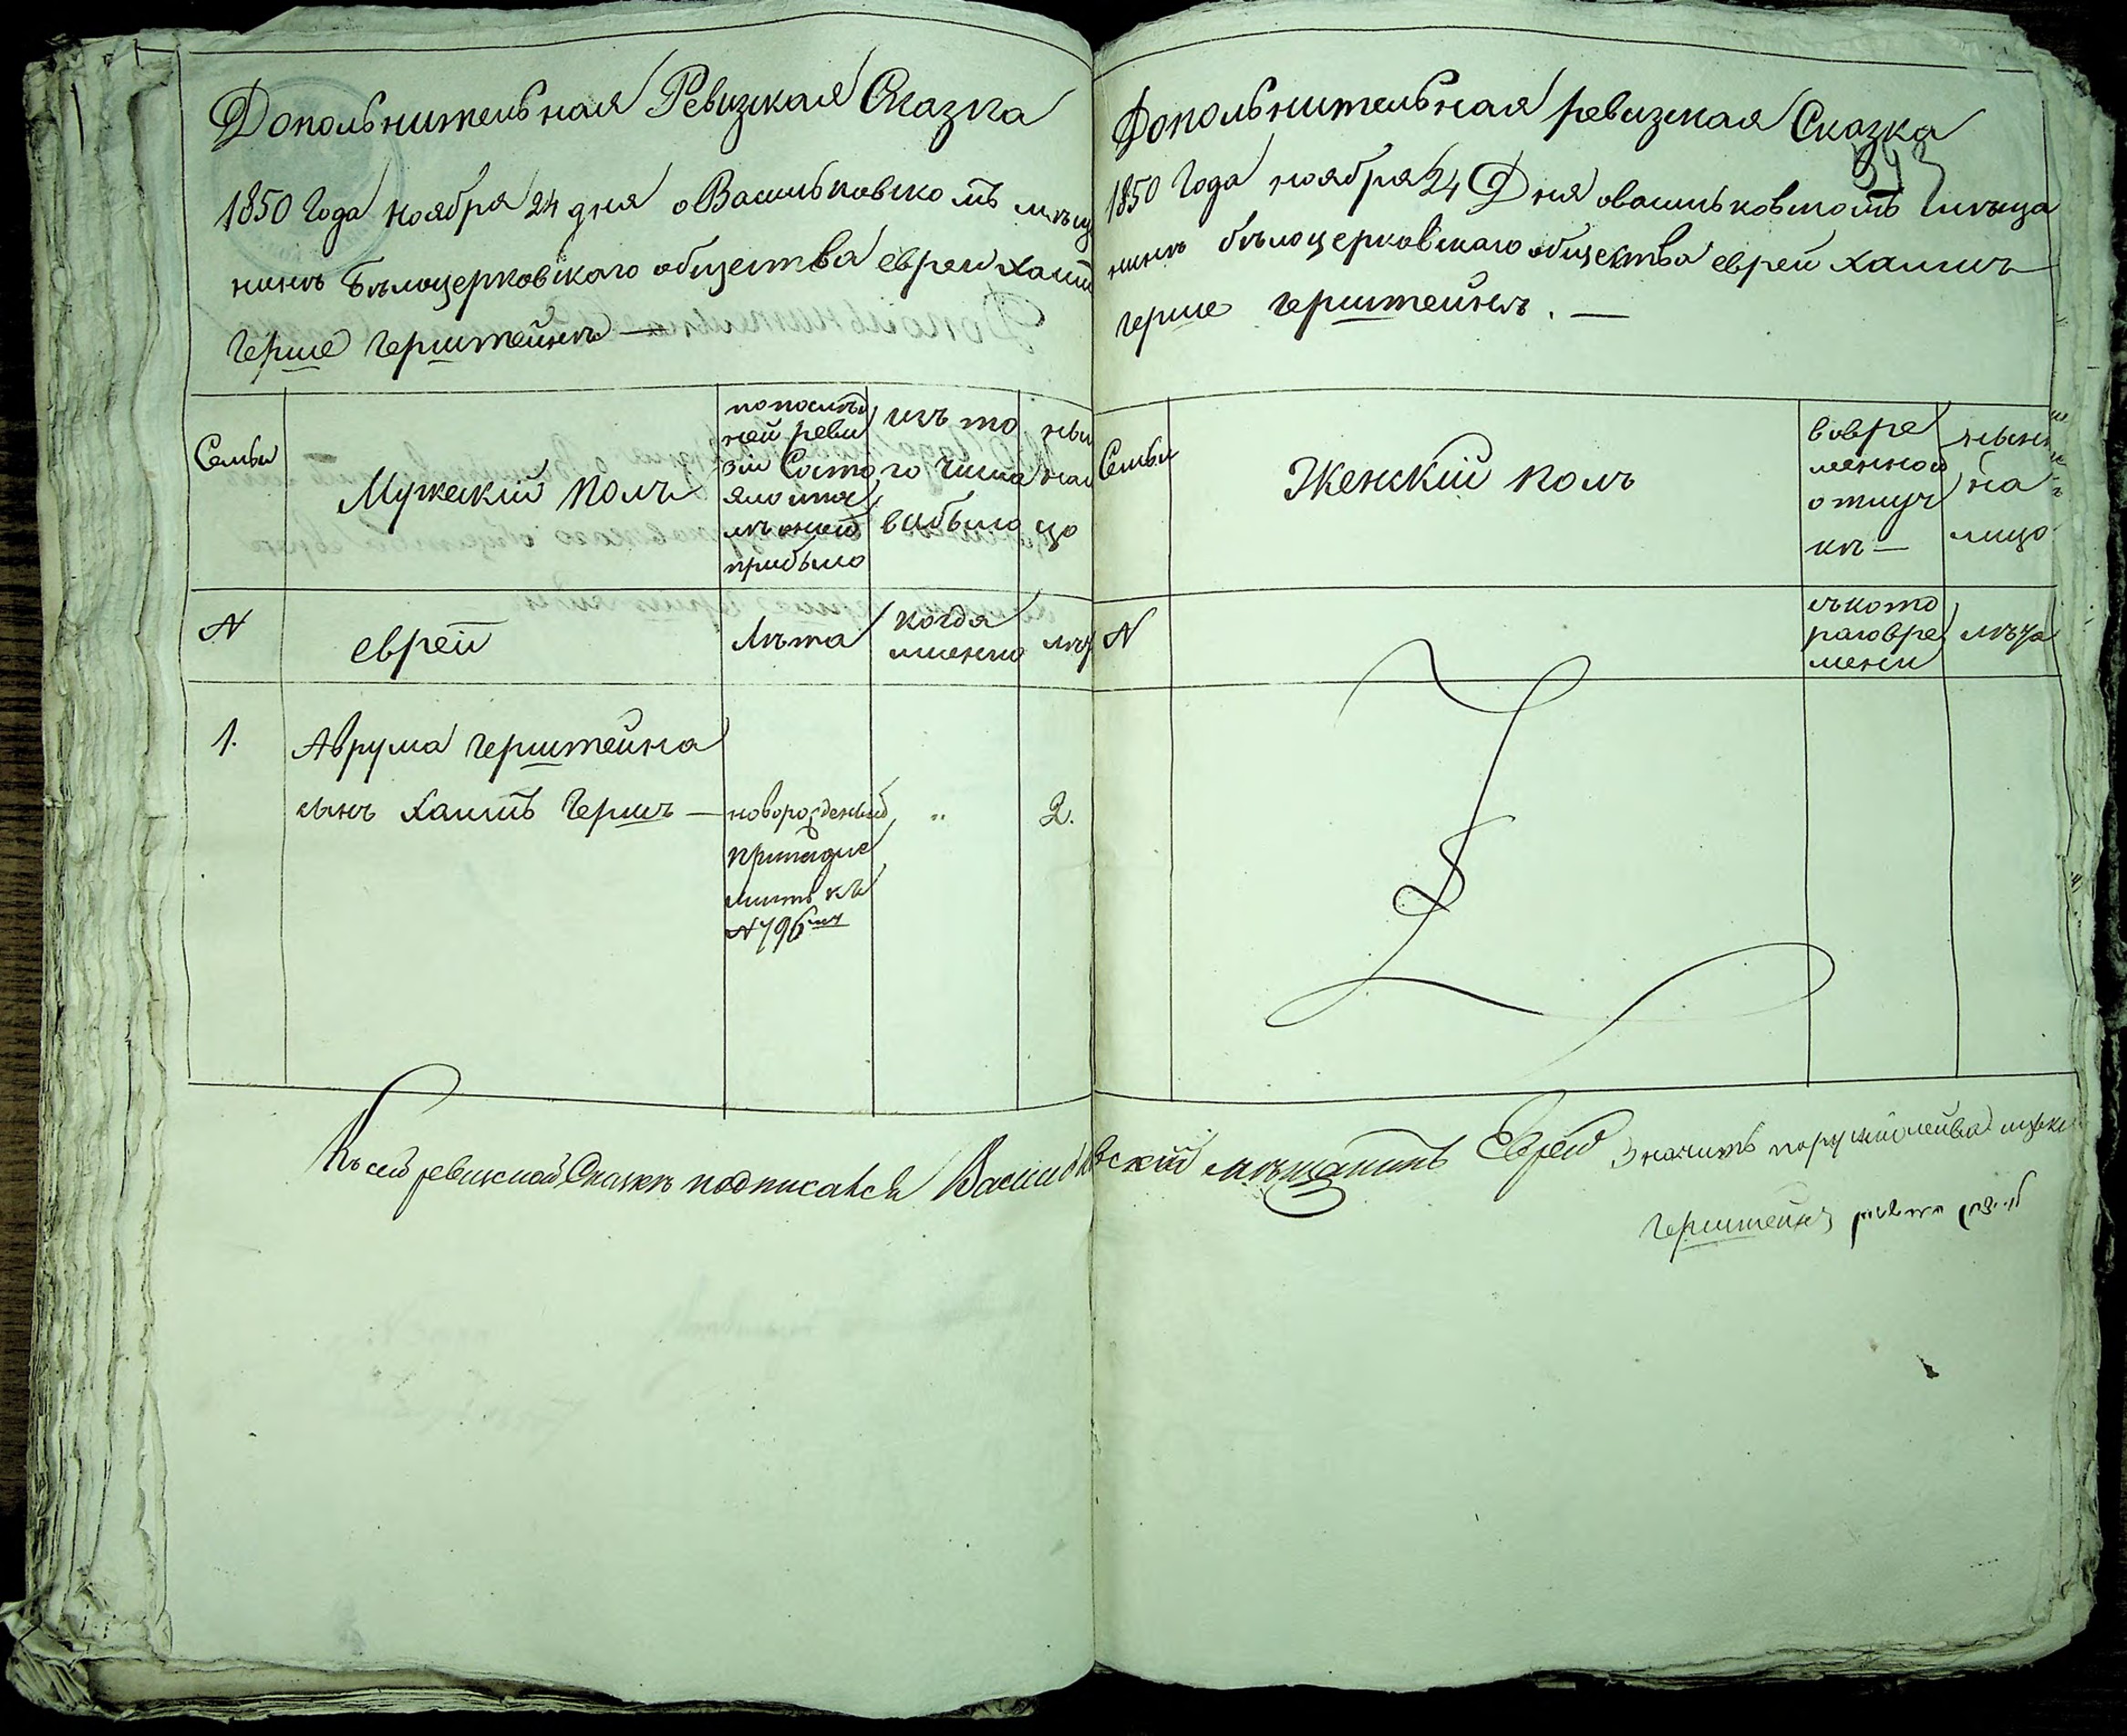 Дополнительная Ревизкая Сказка
1850 Года ноября 24 дня о Васильковскомъ мѣщ
нинѣ Бѣлоцерковского общества еврей Хаим
Герше Герштейнѣ —
Семьи
Мужескій полъ
по послѣд
ней реви
зіи Состо
яло и пос
лѣ оной
прибыло
изъ то
го числа
выбыло
ны
на
цо
№
еврей
Лѣта
когда
именно
лѣт
1.
Аврума Герштейна
сынъ Хаимъ Гершъ — новорожденный „ 2.
принадле
житъ къ
№ 796
Дополнительная ревизкая Сказка
343
1850 Года ноября 24 Дня о васильковскомъ мѣща
нинѣ бѣлоцерковскаго общества еврей хаимъ
герше герштейнѣ. —
Семьи
Женскій полъ
во вре
менной
отлуч
кѣ —
нынѣ
на
лицо
№
съ кото
раго вре
мени
лѣта
Къ сей ревизкой Сказкѣ подписался Васильковский мѣщанинъ Еврей значитъ
Герштейнъ